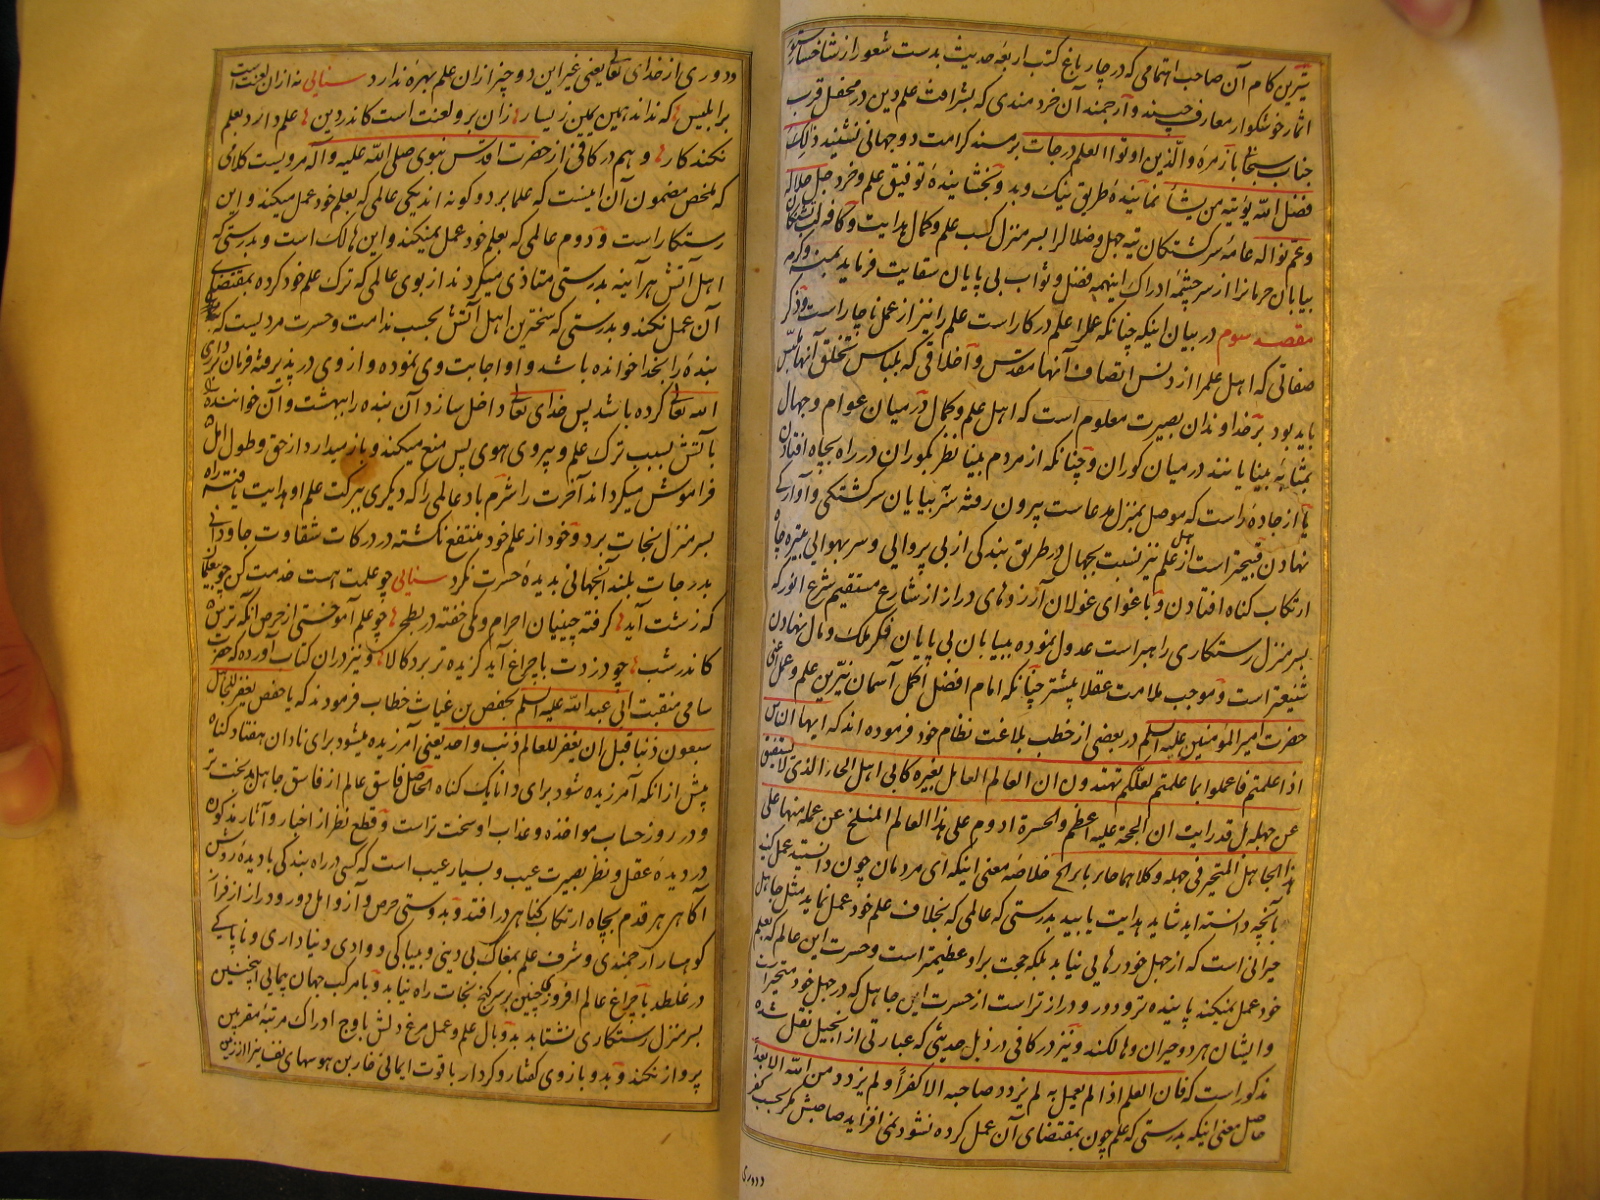 شیرین کام آن صاحب اهتمامی که در چار باغ کتب اربعهٔ حدیث بدست شعور از شاخسار
اثمار خوشگوار معارف چیند و ارجمند آن خردمندی که بشرافت علم دین در محفل قرب
جناب سبحانی بازمرهٔ والذین اوتوا العلم درجات بر مسند کرامت دو جهانی نشیند ذالک
فضل الله یؤتیه من یشأ نمایندهٔ طریق نیک و بد و بخشایندهٔ توفیق علم و خرد جل جلاله
و عم نواله عامهٔ سرکشتکان تیه جهل و ضلال را بسر منزل کسب علم و کمال هدایت و کافه لب تشنکان
بیابان حرمانرا از سرچشمهٔ ادراک اینهمه فضل و ثواب بی پایان سقایت فرماید بمنه و کرمه
مقصد سوم در بیان اینکه چنانکه عمل را علم در کار است علم را نیز از عمل ناچار است و ذکر
صفاتی که اهل علم را از دنس اتصاف آنها مقدس و اخلاقی که بلباس تخلق آنها ملبس
باید بود بر خداوندان بصیرت معلوم است که اهل علم و کمال در میان عوام و جهال
بمثابهٔ بینایانند در میان کوران و چنانکه از مردم بینا نظر بکوران در راه بچاه افتادن
یا از جادهٔ راست که موصل بمنزل مدعاست بیرون رفته سر ببیابان سرکشتکی و آوارکی
نهادن قبیحتر است از اهل علم نیز نسبت بجهال در طریق بندکی از بی پروائی و سر بهوایی بتیره چاه
ارتکاب کناه افتادن و باغوای غولان آرزوهای دراز از شارع مستقیم شرع انور که
بسر منزل رستکاری راهبر است عدول نموده ببیابان بی پایان فکر ملک و مال نهادن
شنیعتر است و موجب ملامت عقلا بیشتر چنانکه امام افضل اکمل آسمان نیّرین علم و عمل اعنی
حضرت امیر المؤمنین علیه السلم در بعضی از خطب بلاغت نظام خود فرموده اند که ایها الناس
اذا علمتم فاعملوا بما علمتم لعلکم تهتدون ان العالم العامل بغیره کالجاهل الحایر الذی لا یستفیق
عن جهله بل قد رایت ان الحجة علیه اعظم والحسرة ادوم علی هذا العالم المنسلخ عن علمه منها علی
هذا الجاهل المتحیر فی جهله و کلاهما حایر بایر الخ خلاصهٔ معنی اینکه ای مردمان چون دانستید عمل کنید
بآنچه دانسته اید شاید هدایت یابید بدرستی که عالمی که بخلاف علم خود عمل نماید مثل جاهل
حیرانی است که از جهل خود رهایی نیابد بلکه حجت بر او عظیمتر است و حسرت این عالم که بعلم
خود عمل نمیکند پاینده تر و دور و دراز تر است از حسرت این جاهل که در جهل خود متحیر است
و ایشان هر دو حیران و هالکند و نیز در کافی در ذیل حدیثی که عبارتی از انجیل نقل شده
مذکور است که فان العلم اذا لم یعمل به لم یزدد صاحبه الا کفراً و لم یزدد من الله الا بعداً
حاصل معنی اینکه بدرستی که علم چون بمقتضای آن عمل کرده نشود نمی افزاید صاحبش مگر بحسب کفر
و دوری
و دوری از خدای تعالی یعنی غیر این دو چیز از ان علم بهره ندارد سنایی نه از ان لعنت است
بر ابلیس که نداند همین یمین ز یسار زان برو لعنت است کاندر دین علم دارد بعلم
نکند کار و هم در کافی از حضرت اقدس نبوی صلی الله علیه و آله مرویست کلامی
که ملخص مضمون آن اینست که علما بر دو کونه اند یکی عالمی که بعلم خود عمل میکند و این
رستکار است و دوم عالمی که بعلم خود عمل نمیکند و این هالک است و بدرستی که
اهل آتش هر آینه بدرستی متاذی میکردند از بوی عالمی که ترک علم خود کرده بمقتضی
آن عمل نکند و بدرستی که سخترین اهل آتش بحسب ندامت و حسرت مردیست که
بندهٔ را بخدا خوانده باشد و او اجابت وی نموده و از وی در پذیرفته فرمان برداری
الله تعالی کرده باشد پس خدای تعالی داخل سازد آن بنده را ببهشت و آن خواننده را
بآتش بسبب ترک علم و پیروی هوی پس منع میکند و باز میدارد از حق و طول امل
فراموش میکرداند آخرت را شرم باد عالمی را که دیکری ببرکت علم او هدایت یافته راه
بسر منزل نجات برد و خود از علم خود منتفع نکشته در درکات شقاوت جاودانی
بدرجات بلند آنجهانی بدیدهٔ حسرت نکرد سنایی چو علمت هست خدمت کن چو بیعلمان
که زشت آید کرفته چینیان احرام و مکی خفته در بطحا چو علم آموختی از حرص آنکه ترس
کاندر شب چو دزدی با چراغ آید کزیده تر برد کالا و نیز در ان کتاب آورده که حضرت
سامی منقبت ابی عبد الله علیه السلم بحفص بن غیاث خطاب فرمودند که یا حفص یغفر للجاهل
سبعون ذنبا قبل ان یغفر للعالم ذنب واحد یعنی آمرزیده میشود برای نادان هفتاد کناه
پیش از انکه آمرزیده شود برای دانا یک کناه الحاصل فاسق عالم از فاسق جاهل بدبخت تر
و در روز حساب مواخذه و عذاب او سخت تر است و قطع نظر از اخبار و آثار مذکوره
در دیدهٔ عقل و نظر بصیرت عیب و بسیار عیب است که کسی در راه بندکی با دیدهٔ روشن
آکاهی هر قدم بچاه ارتکاب کناهی در افتد و بدوستی حرص و آز و امل دور و دراز از فراز
کوهسار ارجمندی و شرف علم بمغاک بی دینی و بیباکی و وادی دنیاداری و ناپاکی
در غلطد با چراغ عالم افروز چنین بر سر کنج نجات راه نیابد و با مرکب جهان پیمایی اینچنین
بسر منزل رستکاری نشتابد بدو بال علم و عمل مرغ دلش باوج ادراک مرتبهٔ مقربین
پرواز نکند و بدو بازوی کفتار و کردار با قوت ایمانی خار بن هوسهای نفسانی را از زمین